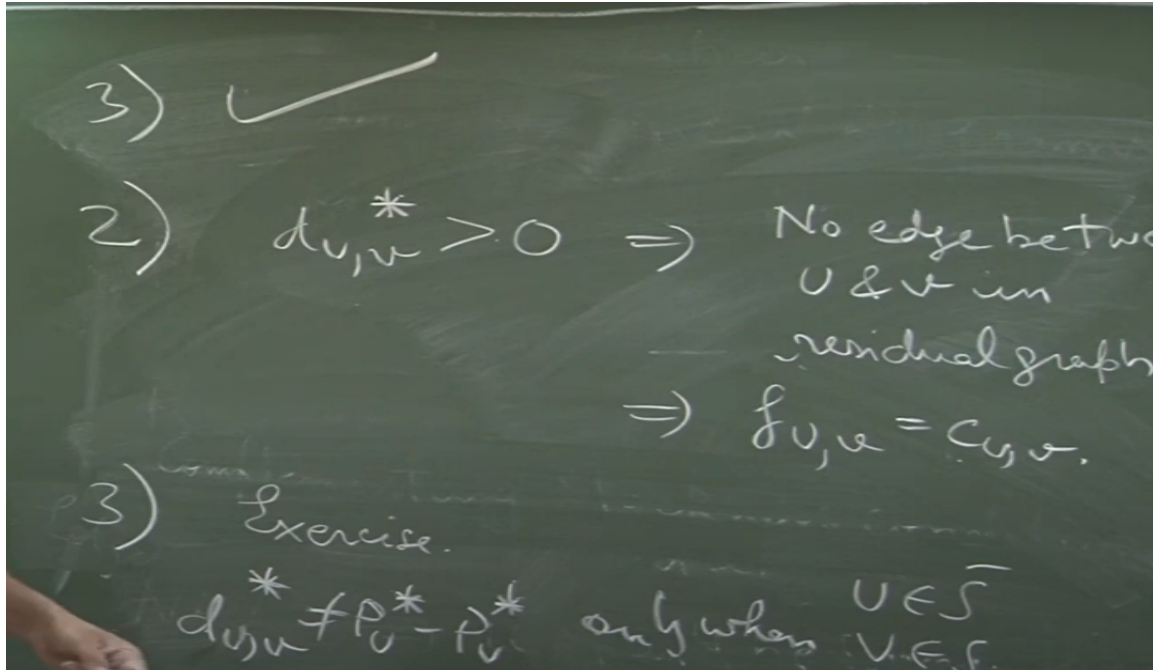 3) ✓
2) d*_{u,v} > 0 ⇒ No edge betwe
u & v in
residual graph
⇒ f_{u,v} = c_{u,v}.
3) Exercise.
d*_{u,v} ≠ p*_u - p*_v only when u ∈ S̄
v ∈ S